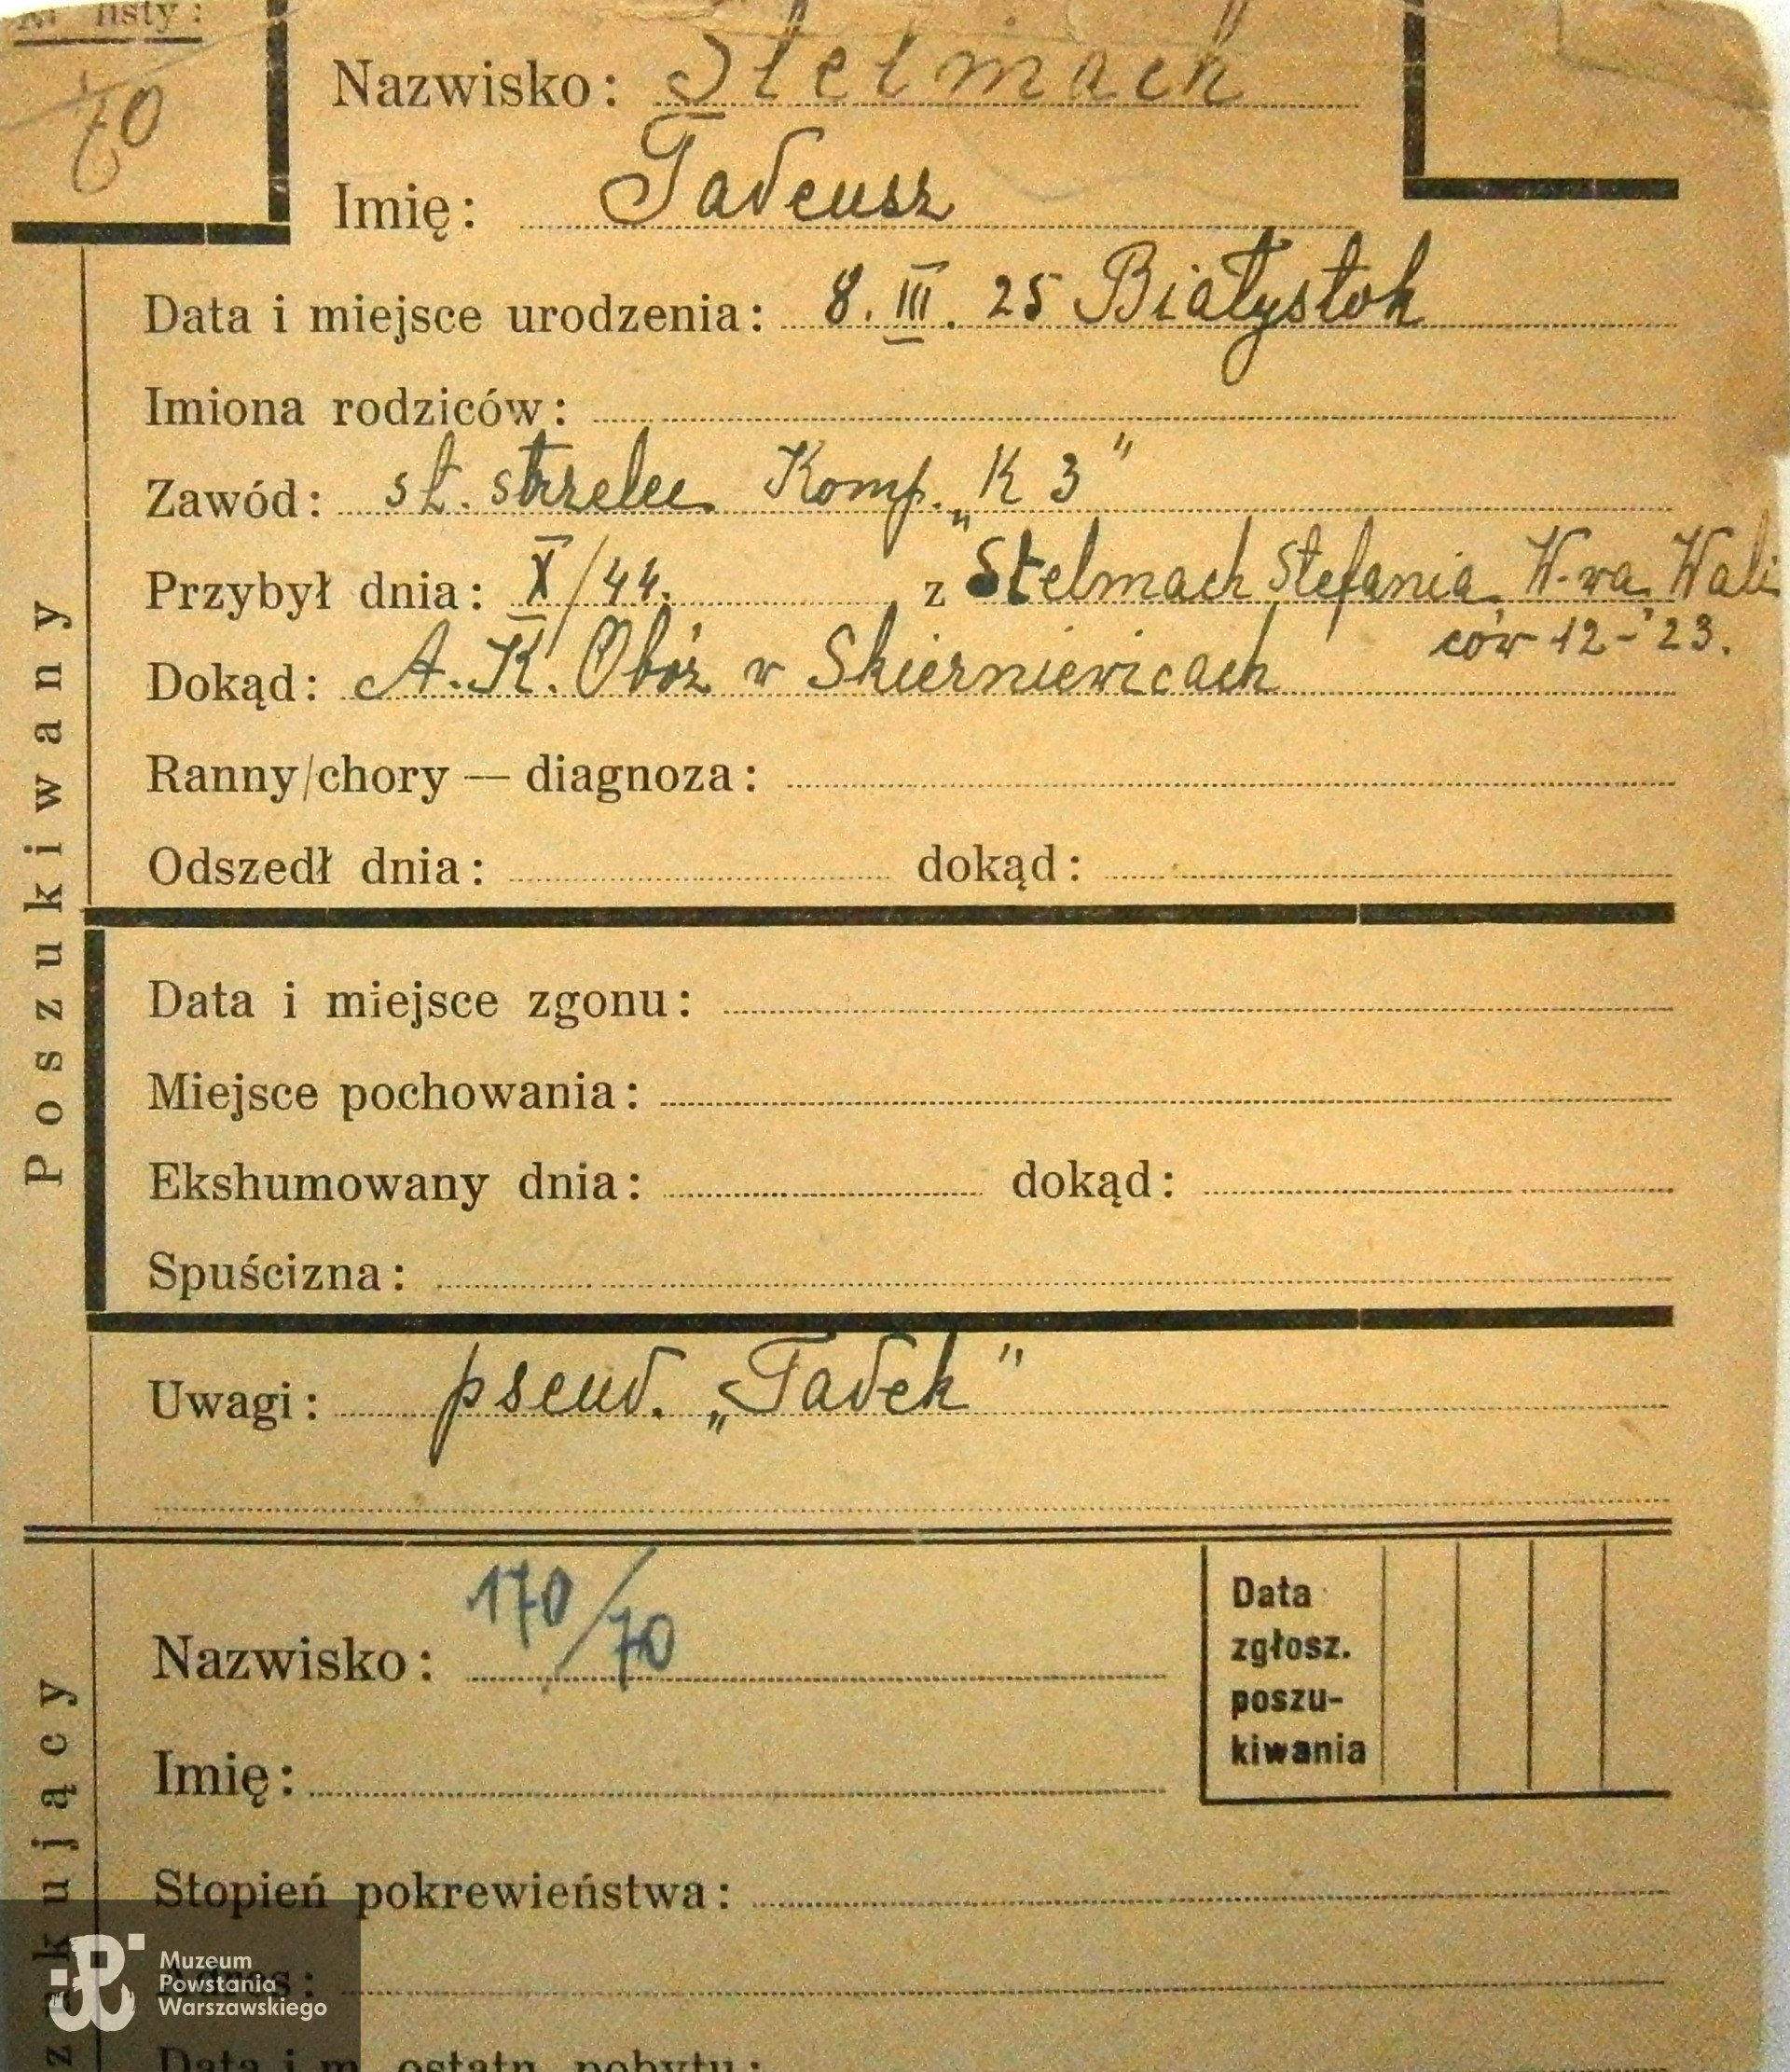 Nr listy:
70
Nazwisko: Stelmach
Imię: Tadeusz
Data i miejsce urodzenia: 8. III. 25 Białystok
Imiona rodziców:
Zawód: st. strzelec Komp. „K 3"
Przybył dnia: X/44. z Stelmach Stefania, W-wa, Wali
ców 12-23.
Dokąd: A.K. Obóz w Skierniewicach
Ranny/chory — diagnoza:
Odszedł dnia: dokąd:
Data i miejsce zgonu:
Miejsce pochowania:
Ekshumowany dnia: dokąd:
Spuścizna:
Uwagi: pseud. „Tadek"
Poszukiwany
170/70
Nazwisko:
Imię:
Data
zgłosz.
poszu-
kiwania
Stopień pokrewieństwa:
Adres:
Data i m. ostatn. pobytu:
zukujący
Muzeum
Powstania
Warszawskiego